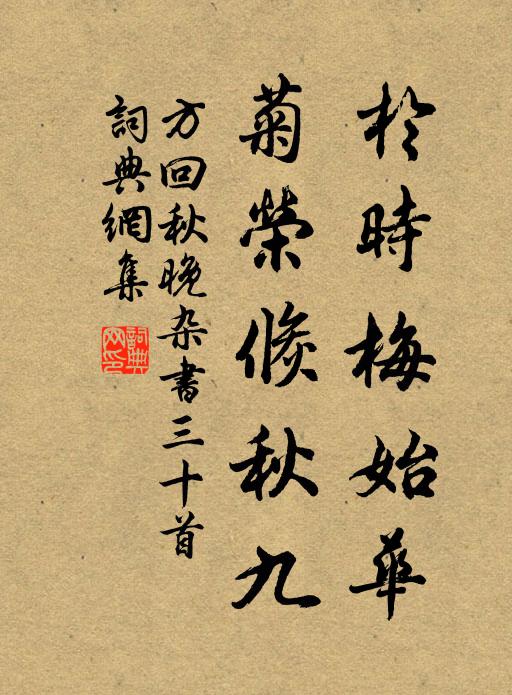 於時梅始華
菊榮倏秋九
方回秋晚杂書三十首
詞典網集
詞典网印